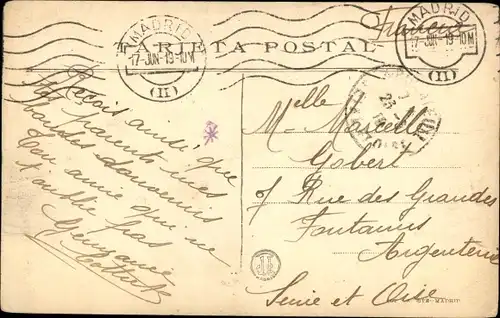 MADRID
17-JUN-19-10M
(II)
TARJETA POSTAL
MADRID
17-JUN-19-10M
(II)
Reçois ainsi que
tes parents mes
d'amour
Ton amie qui ne
t'oublie pas
Germaine
Melle
Marcelle
Gobert
Rue des Grandes
Fontaines
Argenteuil
Seine et Oise
MADRID